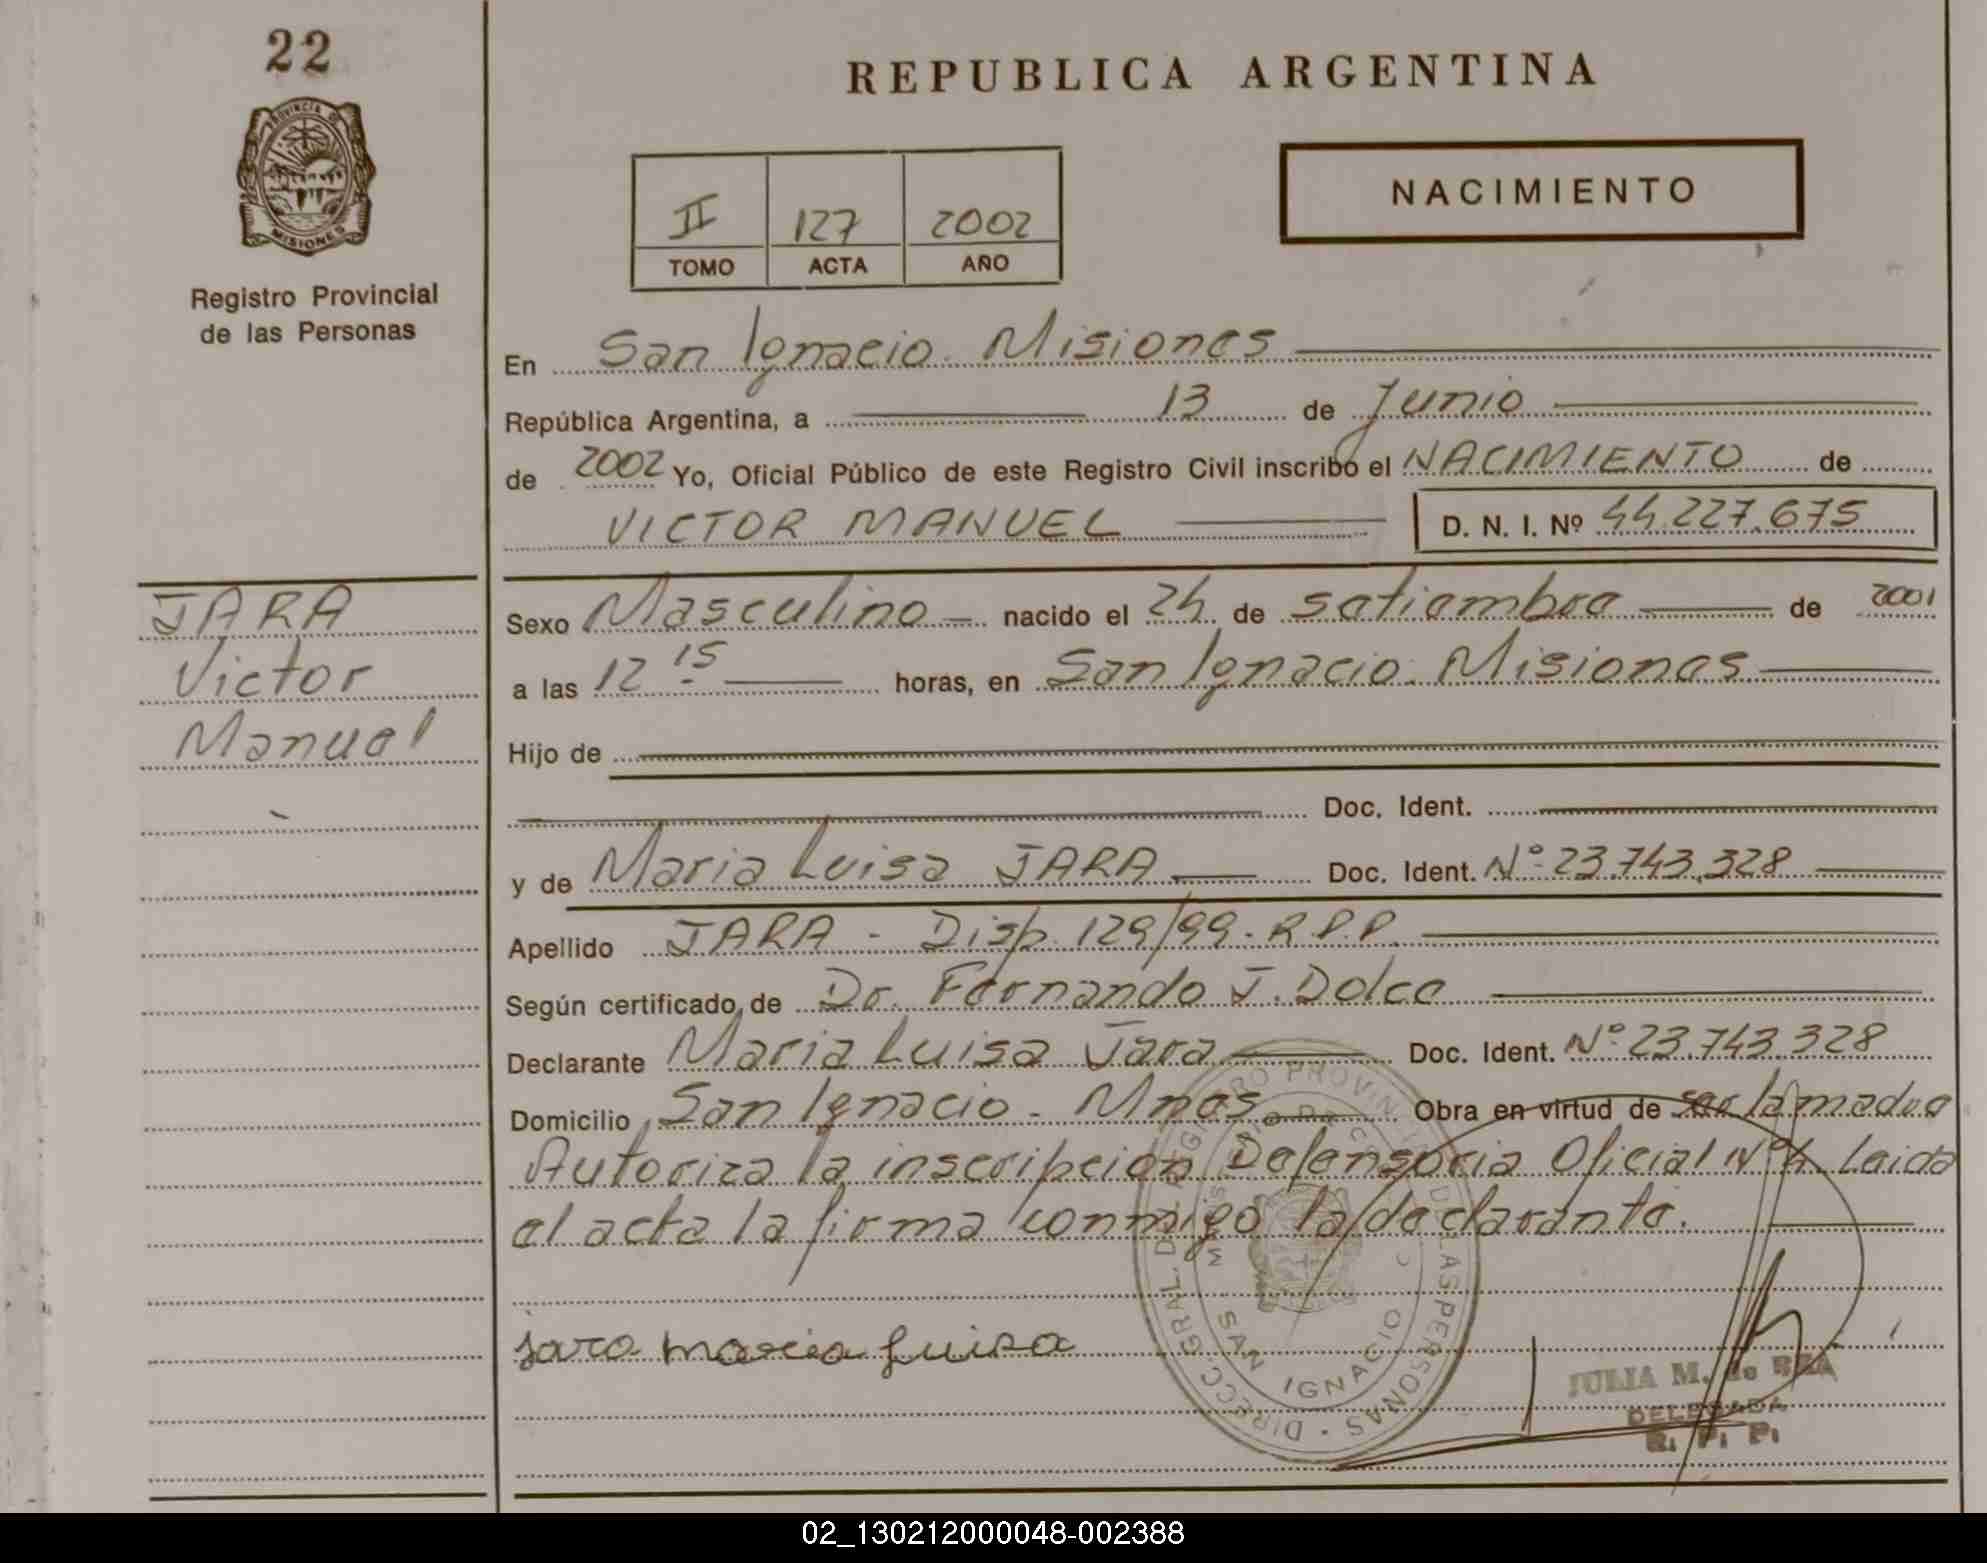 22
REPUBLICA ARGENTINA
PROVINCIA DE MISIONES
Registro Provincial
de las Personas
II 127 2002
TOMO ACTA AÑO
NACIMIENTO
En San Ignacio. Misiones
República Argentina, a 13 de Junio
de 2002 Yo, Oficial Público de este Registro Civil inscribo el NACIMIENTO de
VICTOR MANUEL D. N. I. Nº 44.227.675
JARA
Victor
Manuel
Sexo Masculino nacido el 24 de setiembre de 2001
a las 12 15 horas, en San Ignacio. Misiones
Hijo de
Doc. Ident.
y de Maria Luisa JARA Doc. Ident. Nº 23.743.328
Apellido JARA - Disp. 129/99. R.P.P.
Según certificado de Dr. Fernando J. Dolce
Declarante Maria Luisa Jara Doc. Ident. Nº 23.743.328
Domicilio San Ignacio - Mnes. Obra en virtud de ser la madre
Autoriza la inscripcion Defensoria Oficial Nº 4 Leida
el acta la firma conmigo la declarante.
jara maria luisa
DIRECC. GRAL. DEL REGISTRO PROVINCIAL DE LAS PERSONAS
SAN IGNACIO
JULIA M. de REA
DELEGADA
R. P. P.
02_130212000048-002388